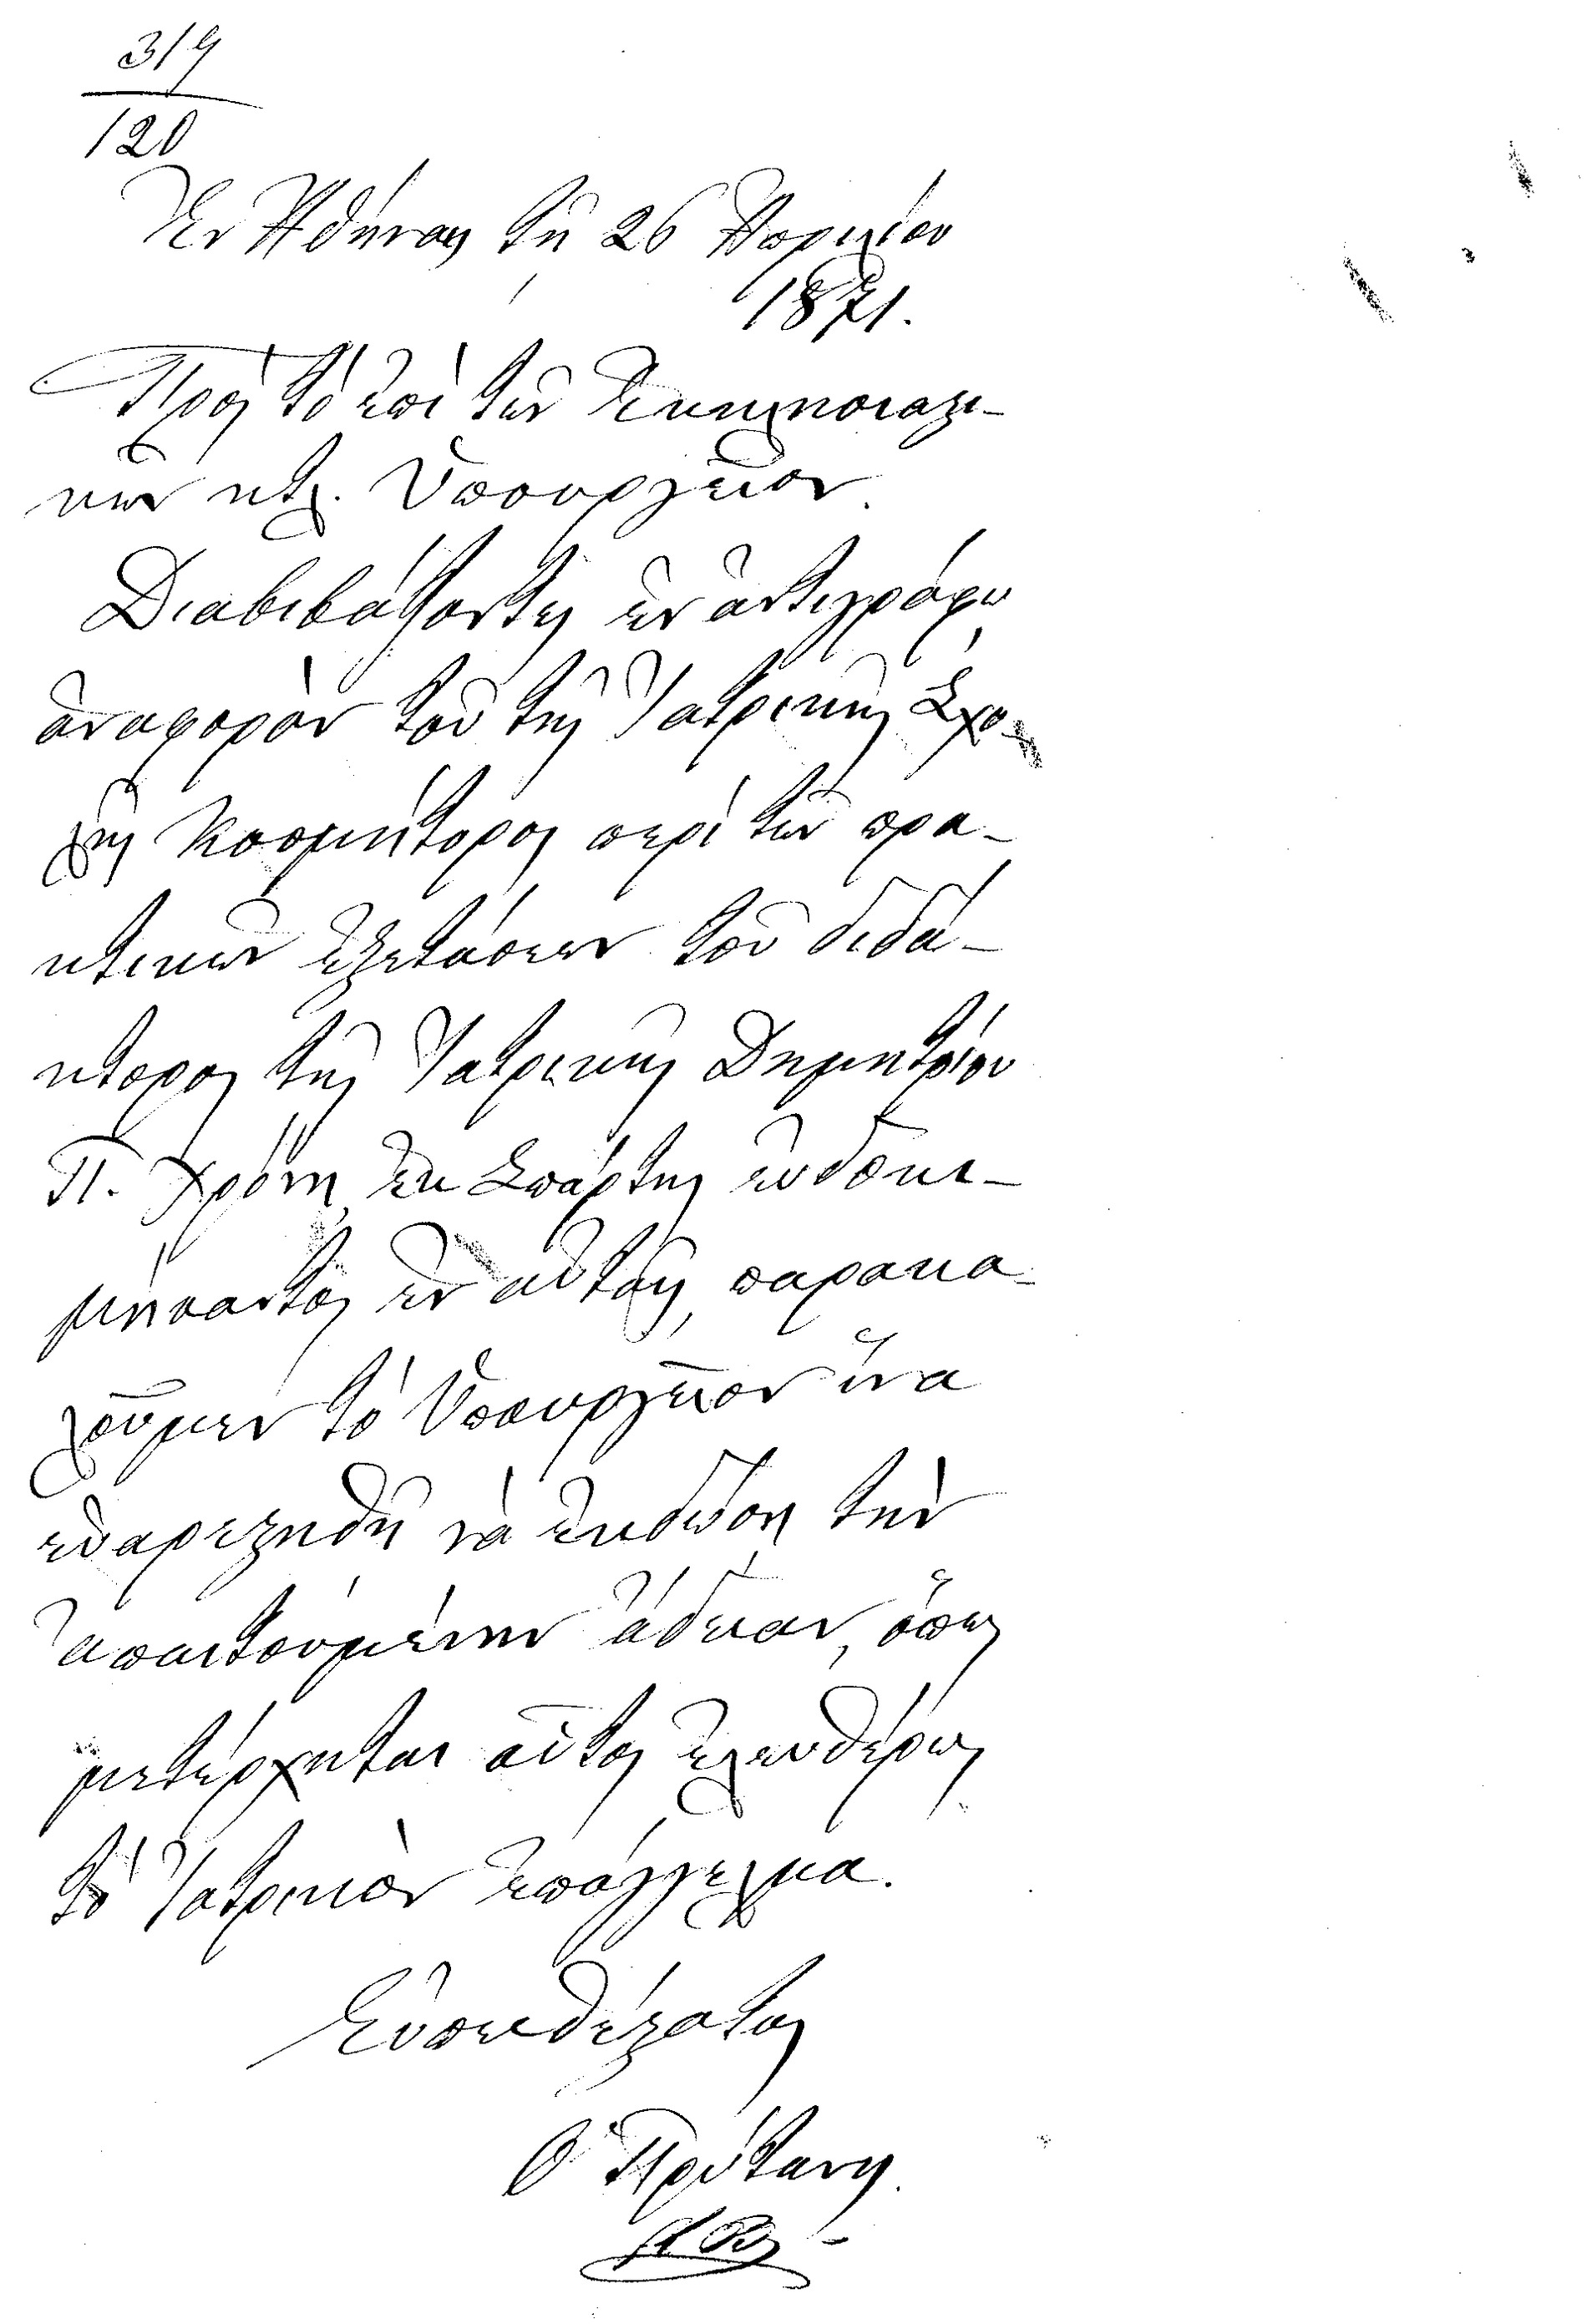 319
120
Ἐν Ἀθήναις τῇ 26 Ἀπριλίου
1871.
Πρὸς τὸ ἐπὶ τῶν Ἐκκλησιαστι-
κῶν κτλ. Ὑπουργεῖον.
Διαβιβάζοντες ἐν ἀντιγράφῳ
ἀναφορὰν τοῦ τῆς Ἰατρικῆς Σχο-
λῆς Κοσμήτορος περὶ τῶν πρα-
κτικῶν ἐξετάσεων τοῦ διδά-
κτορος τῆς Ἰατρικῆς Δημητρίου
Π. Χρόνη, ἐκ Σπάρτης εὐδοκι-
μήσαντος ἐν αὐταῖς, παρακα-
λοῦμεν τὸ Ὑπουργεῖον ἵνα
εὐαρεστηθῇ νὰ ἐκδώσῃ τὴν
ἀπαιτουμένην ἄδειαν, ὅπως
μετέρχηται οὗτος ἐλευθέρως
τὸ Ἰατρικὸν ἐπάγγελμα.
Εὐπειθέστατος
Ὁ Πρύτανις